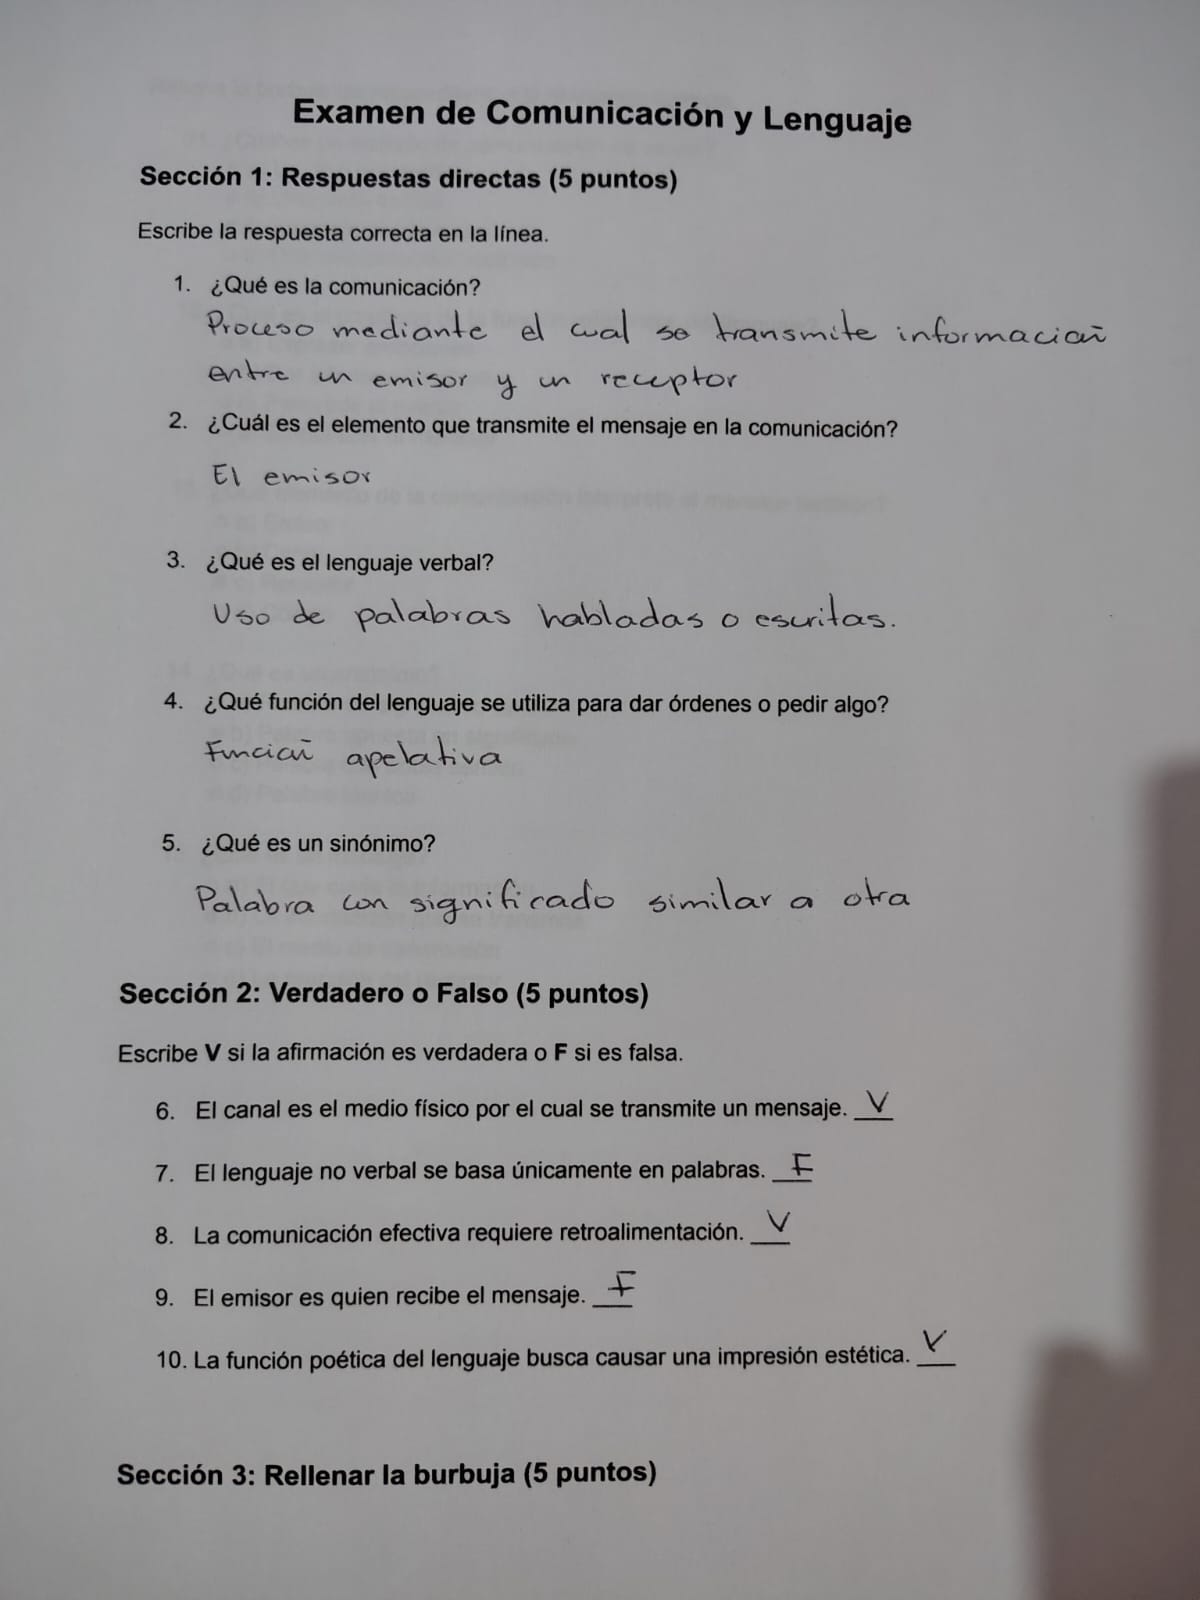 Examen de Comunicación y Lenguaje
Sección 1: Respuestas directas (5 puntos)
Escribe la respuesta correcta en la línea.
1. ¿Qué es la comunicación?
Proceso mediante el cual se transmite información
entre un emisor y un receptor
2. ¿Cuál es el elemento que transmite el mensaje en la comunicación?
El emisor
3. ¿Qué es el lenguaje verbal?
Uso de palabras habladas o escritas.
4. ¿Qué función del lenguaje se utiliza para dar órdenes o pedir algo?
Función apelativa
5. ¿Qué es un sinónimo?
Palabra con significado similar a otra
Sección 2: Verdadero o Falso (5 puntos)
Escribe V si la afirmación es verdadera o F si es falsa.
6. El canal es el medio físico por el cual se transmite un mensaje. V
7. El lenguaje no verbal se basa únicamente en palabras. F
8. La comunicación efectiva requiere retroalimentación. V
9. El emisor es quien recibe el mensaje. F
10. La función poética del lenguaje busca causar una impresión estética. V
Sección 3: Rellenar la burbuja (5 puntos)